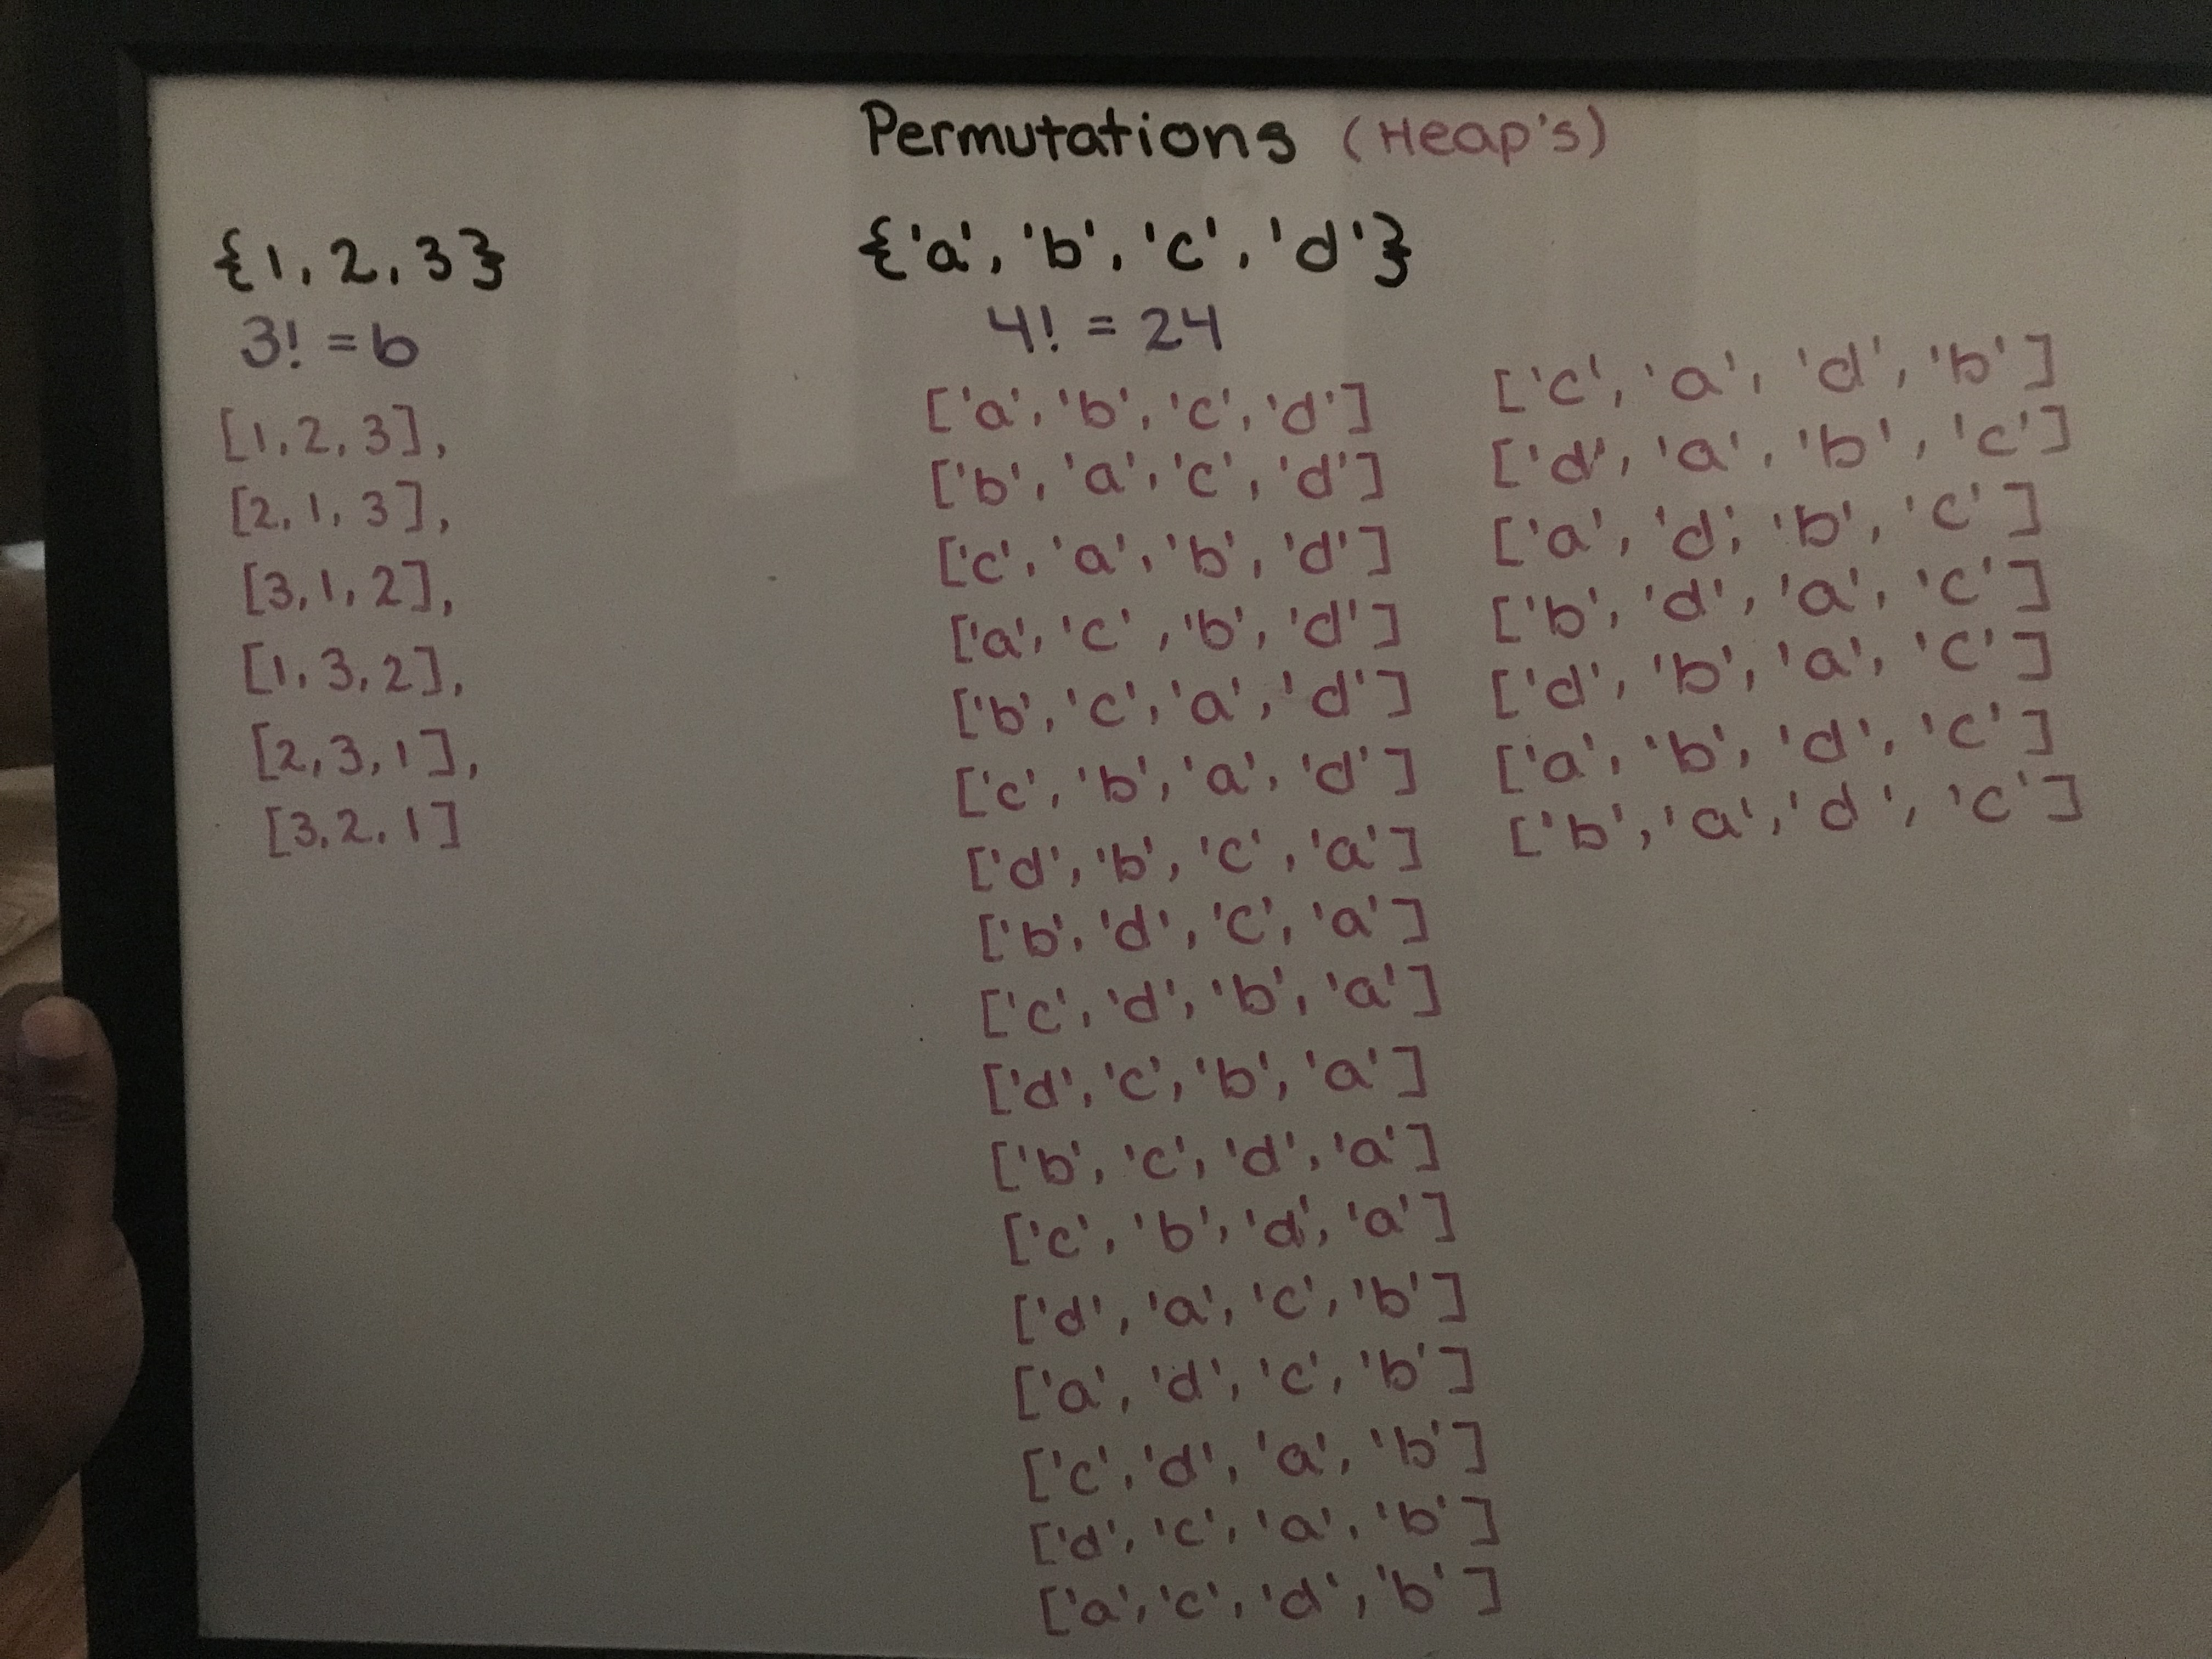 Permutations (Heap's)
{1, 2, 3}
3! = 6
[1, 2, 3],
[2, 1, 3],
[3, 1, 2],
[1, 3, 2],
[2, 3, 1],
[3, 2, 1]
{'a', 'b', 'c', 'd'}
4! = 24
['a', 'b', 'c', 'd']
['b', 'a', 'c', 'd']
['c', 'a', 'b', 'd']
['a', 'c', 'b', 'd']
['b', 'c', 'a', 'd']
['c', 'b', 'a', 'd']
['d', 'b', 'c', 'a']
['b', 'd', 'c', 'a']
['c', 'd', 'b', 'a']
['d', 'c', 'b', 'a']
['b', 'c', 'd', 'a']
['c', 'b', 'd', 'a']
['d', 'a', 'c', 'b']
['a', 'd', 'c', 'b']
['c', 'd', 'a', 'b']
['d', 'c', 'a', 'b']
['a', 'c', 'd', 'b']
['c', 'a', 'd', 'b']
['d', 'a', 'b', 'c']
['a', 'd', 'b', 'c']
['b', 'd', 'a', 'c']
['d', 'b', 'a', 'c']
['a', 'b', 'd', 'c']
['b', 'a', 'd', 'c']